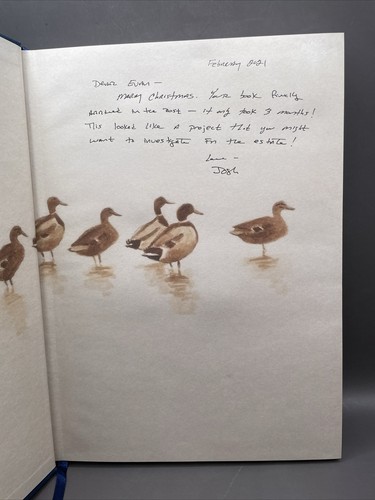 February 2021
Dear Evan —
Merry Christmas. Your book finally
arrived in the post — it only took 3 months!
This looked like a project that you might
want to investigate for the estate!
Love —
Josh